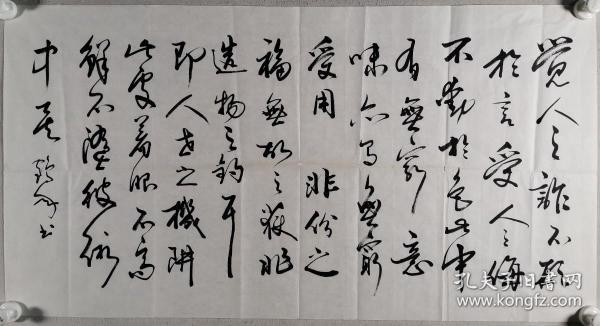 觉人之诈不形
於言受人之侮
不动於色此中
有無穷意
味亦有無穷
受用 非份之
福無故之获非
造物之钓耳
即人世之機阱
此处着眼不高
鲜不堕彼术
中矣 书
孔夫子旧书网
www.kongfz.com